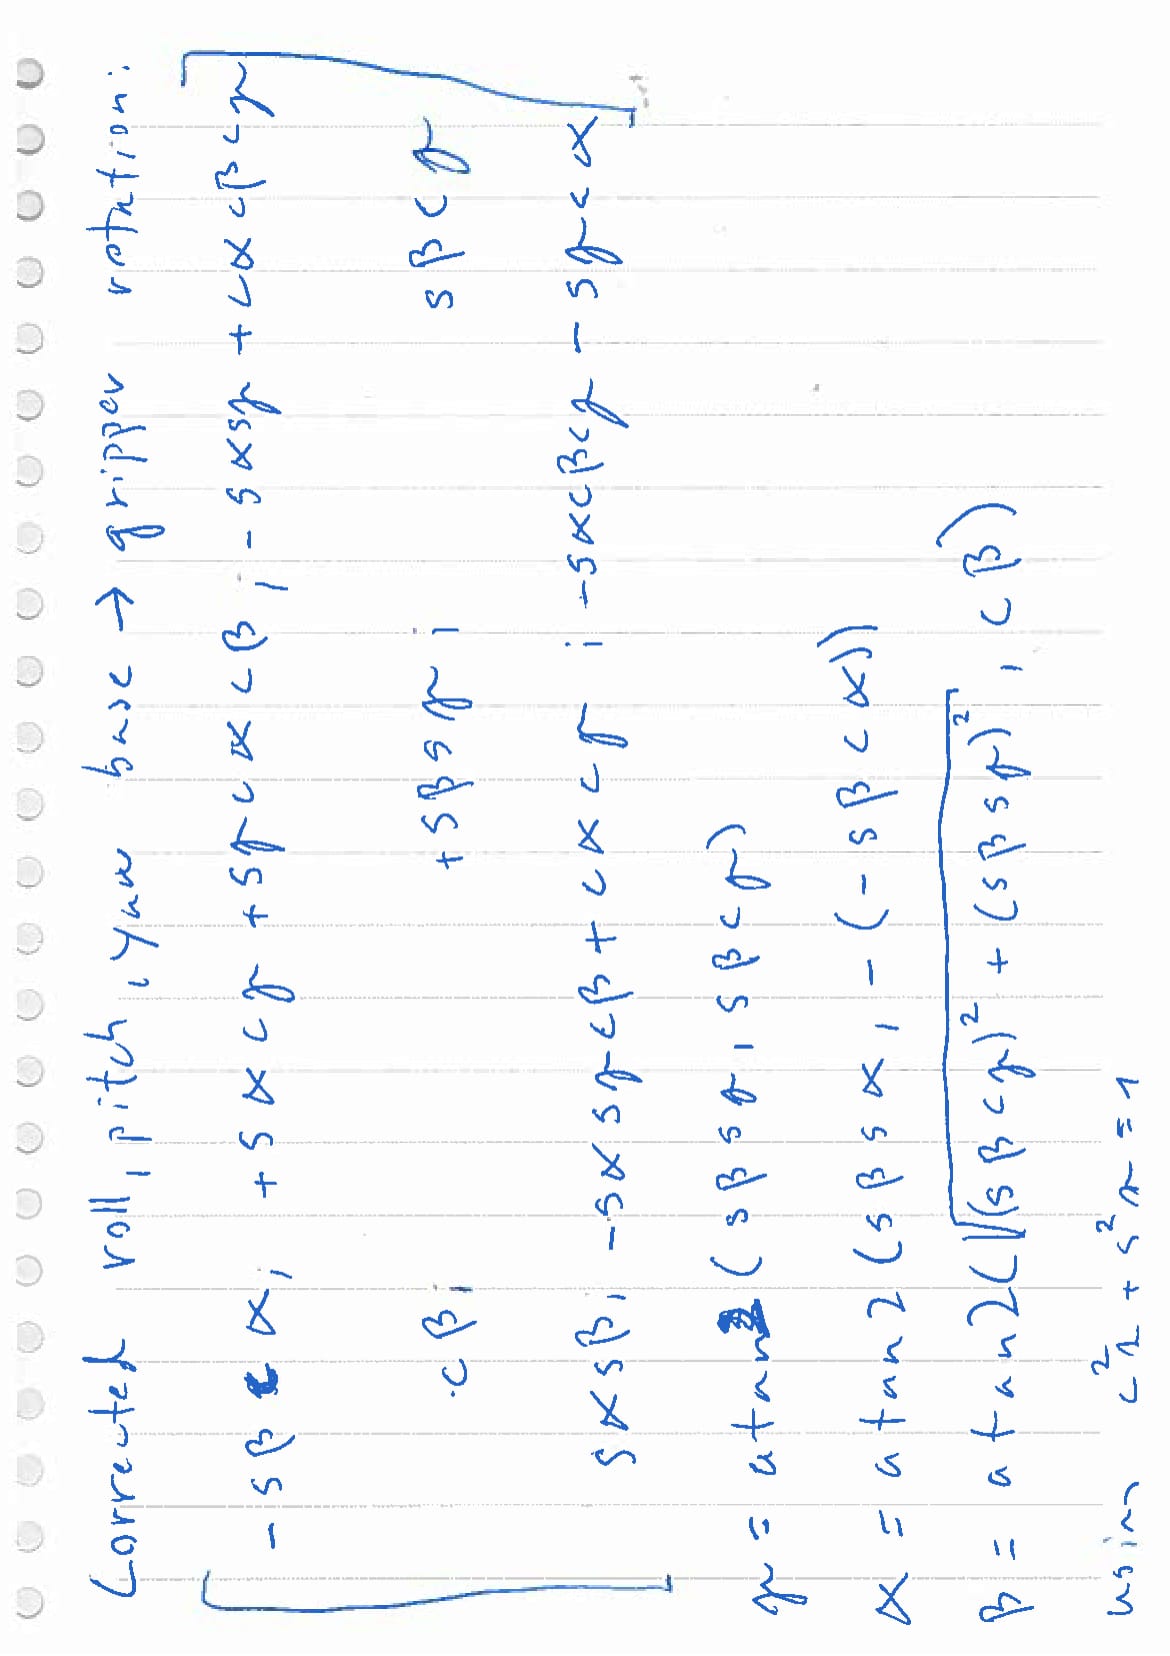 Corrected roll, pitch, yaw base → gripper rotation:
-sβcα, +sαcγ +sγcαcβ, -sαsγ +cαcβcγ
cβ, +sβsγ, sβcγ
sαsβ, -sαsγcβ+cαcγ, -sαcβcγ -sγcα
γ = atan2(sβsγ, sβcγ)
α = atan2(sβsα, -(-sβcα))
β = atan2(√(sβcγ)² + (sβsγ)², cβ)
using c²x + s²x = 1